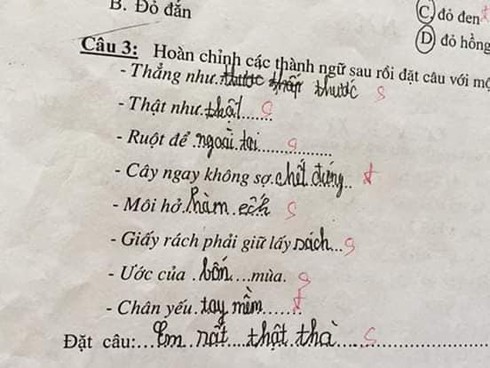 B. Đỏ đắn
C. đỏ đen
D đỏ hồng
Câu 3: Hoàn chỉnh các thành ngữ sau rồi đặt câu với mộ
- Thẳng như thước s
- Thật như.thật...... s
- Ruột để.ngoài.tai............ s
- Cây ngay không sợ.chết đứng.. đ
- Môi hở.hàm.ếch s
- Giấy rách phải giữ lấy sách... s
- Ước của.bốn....mùa. s
- Chân yếu.tay mềm....... đ
Đặt câu:...Em rất....thật.thà..... s